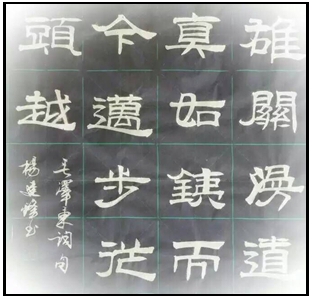 雄關漫道
真如銕而
今邁步從
頭越
毛澤東詞句
楊书